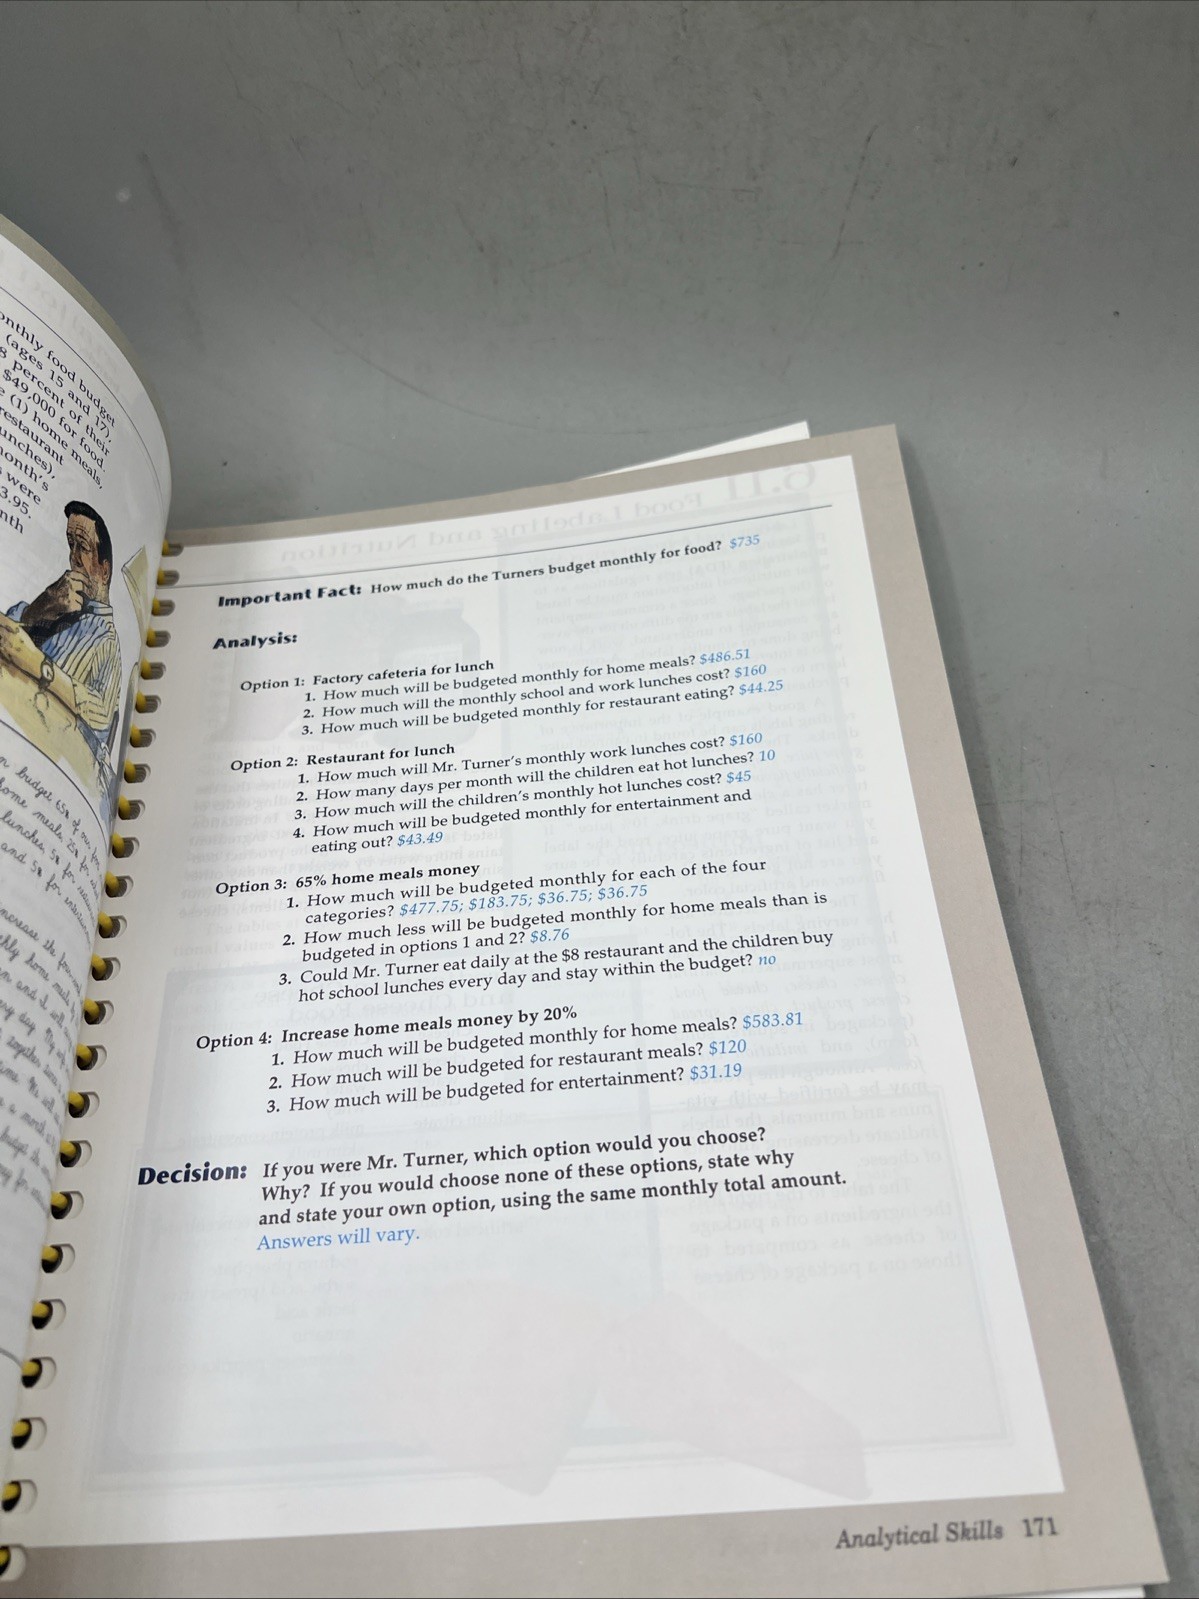 onthly food budget
(ages 15 and 17),
8 percent of their
$49,000 for food.
(1) home meals,
restaurant
unches),
onth's
were
3.95.
nth
budget 65% of our
home meals, 25% for
lunches, 5% for
and 5% for
Important Fact: How much do the Turners budget monthly for food? $735
Analysis:
Option 1: Factory cafeteria for lunch
1. How much will be budgeted monthly for home meals? $486.51
2. How much will the monthly school and work lunches cost? $160
3. How much will be budgeted monthly for restaurant eating? $44.25
Option 2: Restaurant for lunch
1. How much will Mr. Turner's monthly work lunches cost? $160
2. How many days per month will the children eat hot lunches? 10
3. How much will the children's monthly hot lunches cost? $45
4. How much will be budgeted monthly for entertainment and
eating out? $43.49
Option 3: 65% home meals money
1. How much will be budgeted monthly for each of the four
categories? $477.75; $183.75; $36.75; $36.75
2. How much less will be budgeted monthly for home meals than is
budgeted in options 1 and 2? $8.76
3. Could Mr. Turner eat daily at the $8 restaurant and the children buy
hot school lunches every day and stay within the budget? no
Option 4: Increase home meals money by 20%
1. How much will be budgeted monthly for home meals? $583.81
2. How much will be budgeted for restaurant meals? $120
3. How much will be budgeted for entertainment? $31.19
Decision: If you were Mr. Turner, which option would you choose?
Why? If you would choose none of these options, state why
and state your own option, using the same monthly total amount.
Answers will vary.
Analytical Skills 171